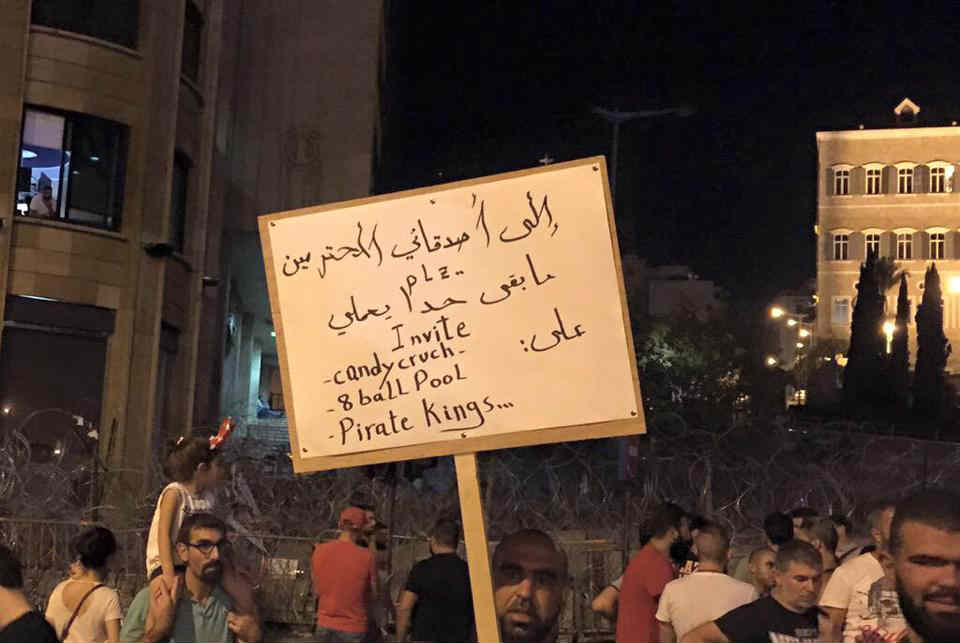 إلى أصدقائي المحترمين
plz..
ما بقى حدا يعملي
Invite على:
-candy cruch-
-8 ball Pool
-Pirate Kings...